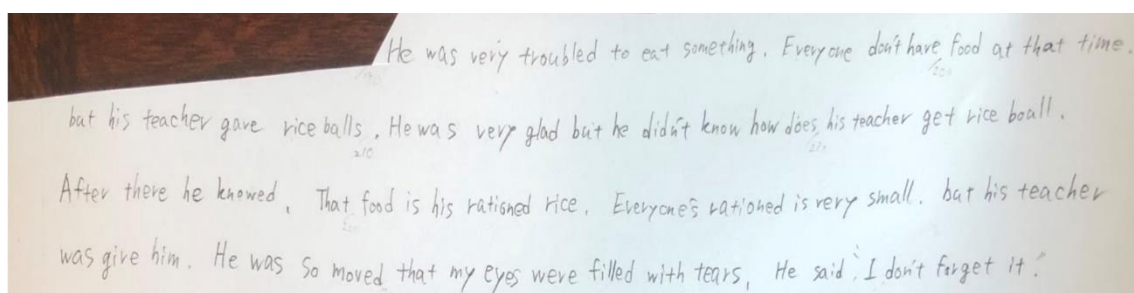 He was very troubled to eat something. Everyone don't have food at that time.
but his teacher gave rice balls. He was very glad but he didn't know how does his teacher get rice boall.
After there he knowed, That food is his rationed rice. Everyone's rationed is very small. but his teacher
was give him. He was so moved that my eyes were filled with tears, He said "I don't forget it."